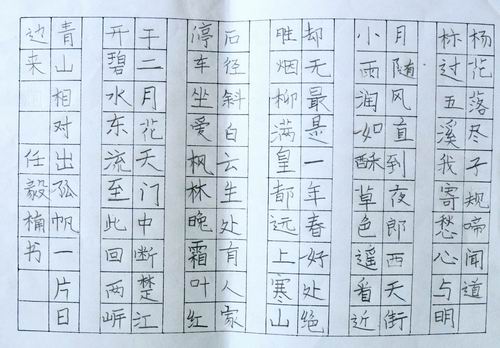 杨花落尽子规啼闻道
标过五溪我寄愁心与明
月随风直到夜郎西天街
小雨润如酥草色遥看近
却无最是一年春好处绝
胜烟柳满皇都远上寒山
后径斜白云生处有人家
停车坐爱枫林晚霜叶红
于二月花天门中断楚江
开碧水东流至此回两岸
青山相对出孤帆一片日
边来 任毅楠书